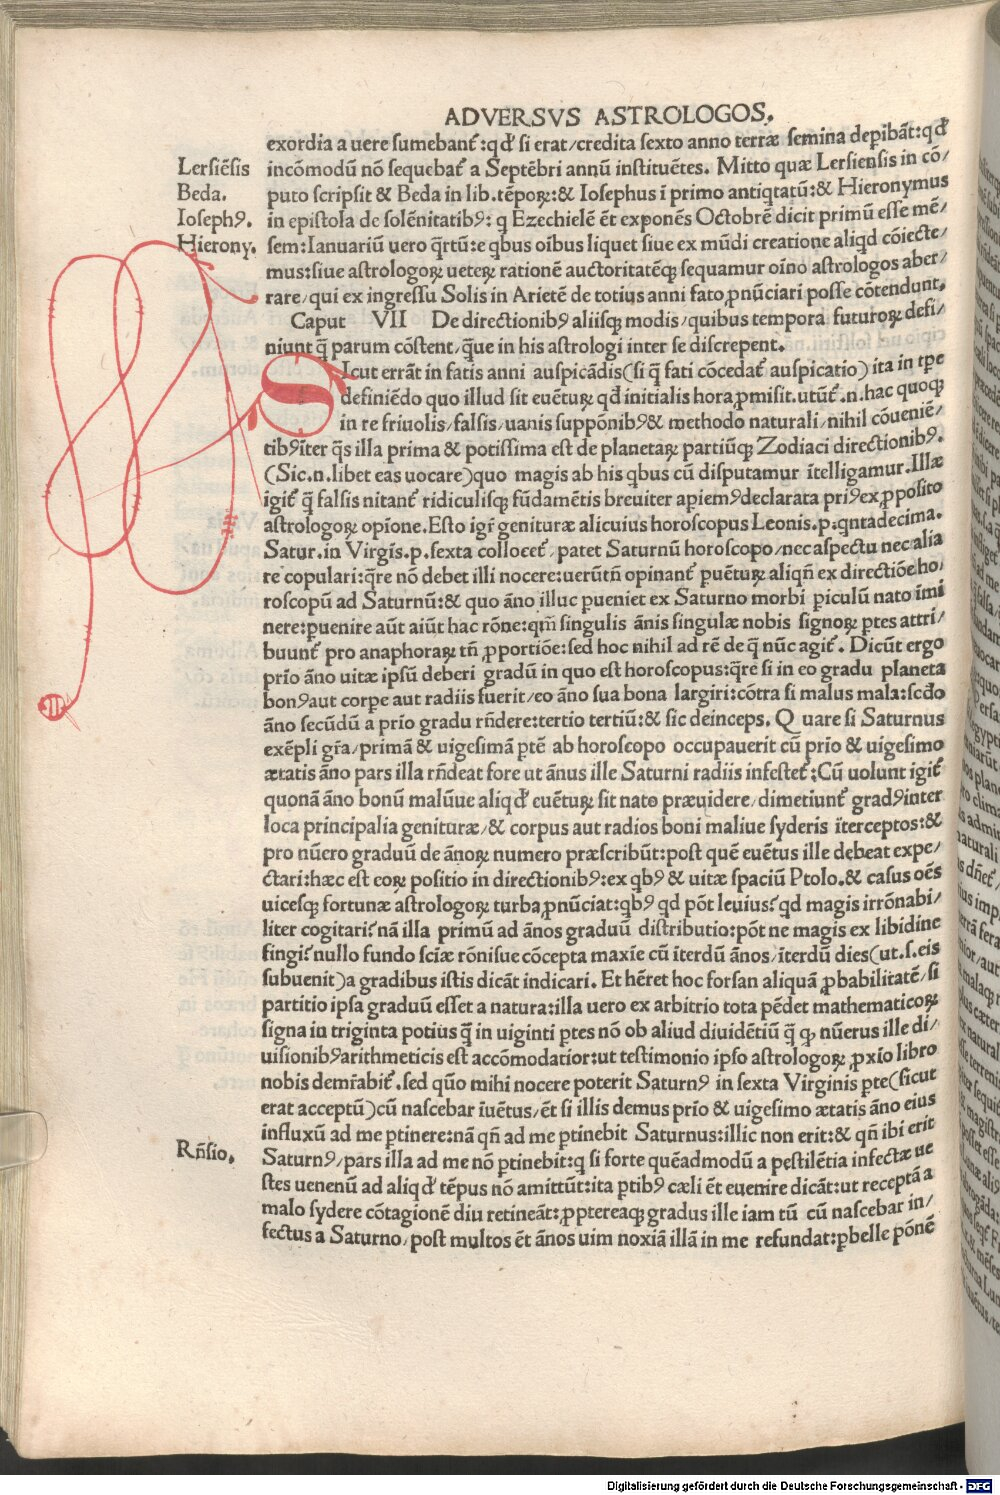 ADVERSVS ASTROLOGOS.
exordia a uere sumebant᷑:qđ si erat/credita sexto anno terræ semina depibāt:qđ
incōmodū nō sequebat᷑ a Septēbri annū instituētes. Mitto quæ Lersiensis in cō/
puto scripsit & Beda in lib.tēpoꝝ:& Iosephus ī primo antiqtatū:& Hieronymus
in epistola de solēnitatibꝰ: q Ezechielē ēt exponēs Octobrē dicit primū esse mē/
sem:Ianuariū uero q̄rtū:e qbus oībus liquet siue ex mūdi creatione aliqd cōiecte/
mus:siue astrologoꝝ ueteꝝ rationē auctoritatēqꝫ sequamur oīno astrologos aber/
rare/qui ex ingressu Solis in Arietē de totius anni fato ꝓnūciari posse cōtendunt.
Lersiēsis
Beda.
Iosephꝰ.
Hierony.
Caput VII De directionibꝰ aliisqꝫ modis/quibus tempora futuroꝝ defi/
niunt q̄ parum cōstent/q̄ue in his astrologi inter se discrepent.
SIcut errāt in fatis anni auspicādis(si q̄ fati cōcedat᷑ auspicatio)ita in tꝑe
definiēdo quo illud sit euētuꝝ qđ initialis hora ꝓmisit.utūt᷑.n.hac quoqꝫ
in re friuolis/falsis/uanis suppōnibꝰ& methodo naturali/nihil cōueniē/
tibꝰīter q̄s illa prima & potissima est de planetaꝝ partiūqꝫ Zodiaci directionibꝰ.
(Sic.n.libet eas uocare)quo magis ab his qbus cū disputamur ītelligamur.Illæ
igit᷑ q̄ falsis nitant᷑ ridiculisqꝫ fūdamētis breuiter apiemꝰdeclarata priꝰex ꝓposito
astrologoꝝ opīone.Esto igr̄ genituræ alicuius horoscopus Leonis.p.qntadecima.
Satur.in Virgīs.p.sexta collocet᷑/patet Saturnū horoscopo/nec aspectu nec alia
re copulari:q̄re nō debet illi nocere:uerūtn̄ opinant᷑ puētuꝝ aliqn̄ ex directiōe ho/
roscopū ad Saturnū:& quo āno illuc pueniet ex Saturno morbi piculū nato īmi
nere:puenire aūt aiūt hac rōne:qm̄ singulis ānis singulæ nobis signoꝝ ptes attri/
buunt᷑ pro anaphoraꝝ tn̄ ꝓportiōe:sed hoc nihil ad rē de q̄ nūc agit᷑. Dicūt ergo
prio āno uitæ ipsū deberi gradū in quo est horoscopus:q̄re si in eo gradu planeta
bonꝰaut corpe aut radiis fuerit/eo āno sua bona largiri:cōtra si malus mala:secdo
āno secūdū a prio gradu rn̄dere:tertio tertiū:& sic deinceps. Q uare si Saturnus
exēpli gr̄a/primā & uigesimā ptē ab horoscopo occupauerit cū prio & uigesimo
ætatis āno pars illa rn̄deat fore ut ānus ille Saturni radiis infestet᷑:Cū uolunt igit᷑
quonā āno bonū malūue aliqđ euētuꝝ sit nato præuidere/dimetiunt᷑ gradꝰinter
loca principalia genituræ/& corpus aut radios boni maliue syderis īterceptos:&
pro nūero graduū de ānoꝝ numero præscribūt:post quē euētus ille debeat expe/
ctari:hæc est eoꝝ positio in directionibꝰ:ex qbꝰ & uitæ spaciū Ptolo.& casus oēs
uicesqꝫ fortunæ astrologoꝝ turba ꝓnūciat:qbꝰ qd pōt leuius?qd magis irrōnabi/
liter cogitari?nā illa primū ad ānos graduū distributio:pōt ne magis ex libidine
fingi?nullo fundo sciæ rōnisue cōcepta maxīe cū īterdū ānos/īterdū dies(ut.s.eis
subuenit)a gradibus istis dicāt indicari. Et hēret hoc forsan aliquā ꝓbabilitatē/si
partitio ipsa graduū esset a natura:illa uero ex arbitrio tota pēdet mathematicoꝝ
signa in triginta potius q̄ in uiginti ptes nō ob aliud diuidētiū q̄ ꝙ nūerus ille di/
uisionibꝰarithmeticis est accōmodatior:ut testimonio ipso astrologoꝝ ꝓxīo libro
nobis demr̄abit᷑.sed quō mihi nocere poterit Saturnꝰ in sexta Virginis pte(sicut
erat acceptū)cū nascebar īuētus/ēt si illis demus prio & uigesimo ætatis āno eius
influxū ad me ptinere:nā qn̄ ad me ptinebit Saturnus:illic non erit:& qn̄ ibi erit
Saturnꝰ/pars illa ad me nō ptinebit:q si forte quēadmodū a pestilētia infectæ ue
stes uenenū ad aliqđ tēpus nō amittūt:ita ptibꝰ cæli ēt euenire dicāt:ut receptā a
malo sydere cōtagionē diu retineāt:ꝓptereaqꝫ gradus ille iam tū cū nascebar in/
fectus a Saturno/post multos ēt ānos uim noxiā illā in me refundat:pbelle pōnē
Rn̄sio.
Digitalisierung gefördert durch die Deutsche Forschungsgemeinschaft - DFG